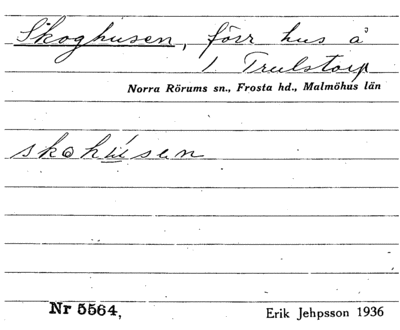 Skoghusen, förr hus å
1 Trulstorp
Norra Rörums sn., Frosta hd., Malmöhus län
skohúsen
Nr 5564,
Erik Jehpsson 1936